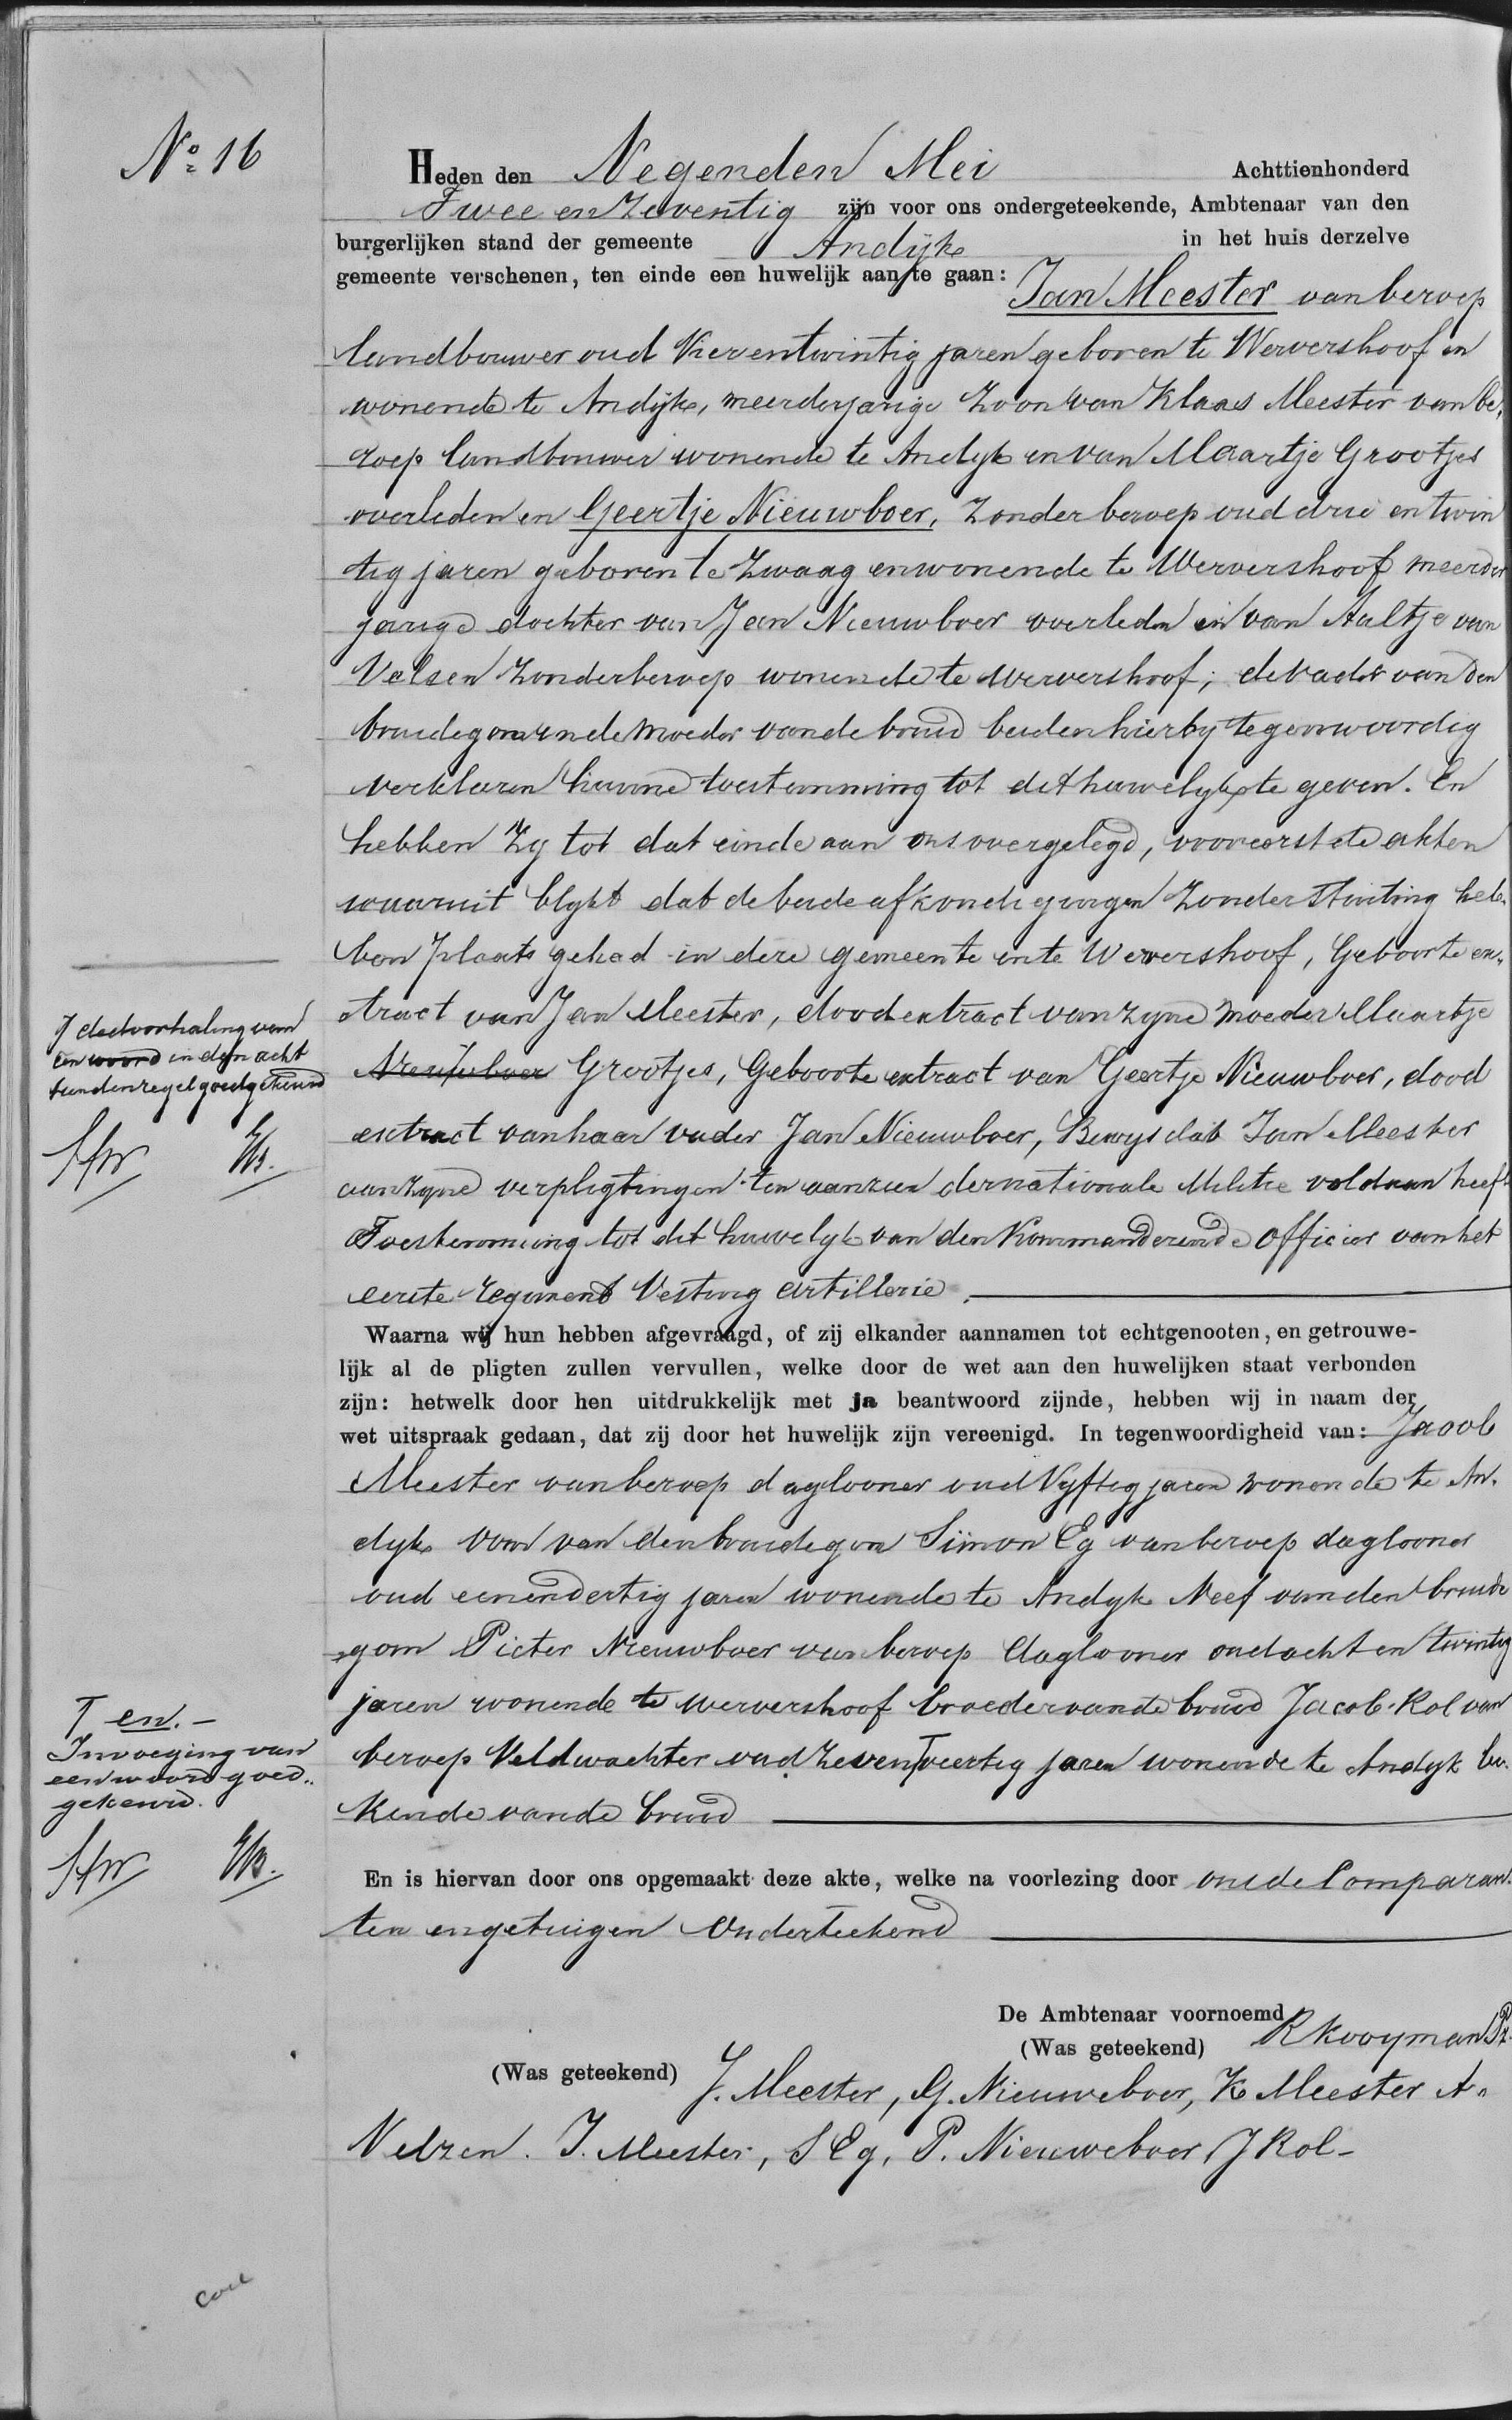 No 16
Heden den Negenden Mei Achttienhonderd
Twee en Zeventig zijn voor ons ondergeteekende, Ambtenaar van den
burgerlijken stand der gemeente Andijk in het huis derzelve
gemeente verschenen, ten einde een huwelijk aan te gaan:
Jan Meester van beroep
landbouwer oud Vierentwintig jaren geboren te Wervershoof en
wonende te Andijk, meerderjarige Zoon van Klaas Meester van be,
roep landbouwer wonende te Andyk en van Maartje Grootjes
overleden en Geertje Nieuwboer, Zonder beroep oud drie en twin
tig jaren geboren te Zwaag en wonende te Wervershoof meerder
jarige dochter van Jan Nieuwboer overleden en van Aaltje van
Velsen Zonder beroep wonende te Wervershoof; de vader van den
bruidegom en de moeder van de bruid beiden hierby tegenwoordig
verklaren hunne toestemming tot dit huwelyk te geven. En
hebben Zy tot dat einde aan ons overgelegd, vooreerst de akten
waaruit blykt dat de beide afkondigingen Zonder Stuiting heb,
ben plaats gehad in deze gemeente en te Wervershoof, Geboorte ex,
tract van Jan Meester, doodextract van zyne moeder Maartje
Nieuwboer Grootjes, Geboorte extract van Geertje Nieuwboer, dood
extract van haar vader Jan Nieuwboer, Bewys dat Jan Meester
aan zyne verpligtingen ten aanzien der nationale Militie voldaan heeft
Toestemming tot dit huwelyk van den Kommanderende Officier van het
eerste regiment Vesting artillerie.
Waarna wij hun hebben afgevraagd, of zij elkander aannamen tot echtgenooten, en getrouwe-
lijk al de pligten zullen vervullen, welke door de wet aan den huwelijken staat verbonden
zijn: hetwelk door hen uitdrukkelijk met ja beantwoord zijnde, hebben wij in naam der
wet uitspraak gedaan, dat zij door het huwelijk zijn vereenigd. In tegenwoordigheid van: Jacob
Meester van beroep daglooner oud Vyftig jaren wonende te An,
dyk oom van den bruidegom Siimon Eg van beroep daglooner
oud eenendertig jaren wonende te Andyk Neef van den bruide
gom Pieter Nieuwboer van beroep daglooner oud acht en twintig
jaren wonende te Wervershoof broeder van de bruid Jacob Kol van
beroep Veldwachter oud Zeven T veertig jaren wonende te Andyk be,
kende van de bruid
En is hiervan door ons opgemaakt deze akte, welke na voorlezing door ons de Comparan,
ten en getuigen Onderteekend
De Ambtenaar voornoemd
(Was geteekend) R Kooyman Pz
(Was geteekend) J. Meester, G. Nieuweboer, K Meester A,
Velzen. J. Meester, S Eg, P. Nieuweboer, J Kol-
de doorhaling van
een woord in den acht
tienden regel goedgekeurd
T en. -
Invoeging van
een woord goed,,
gekeurd.